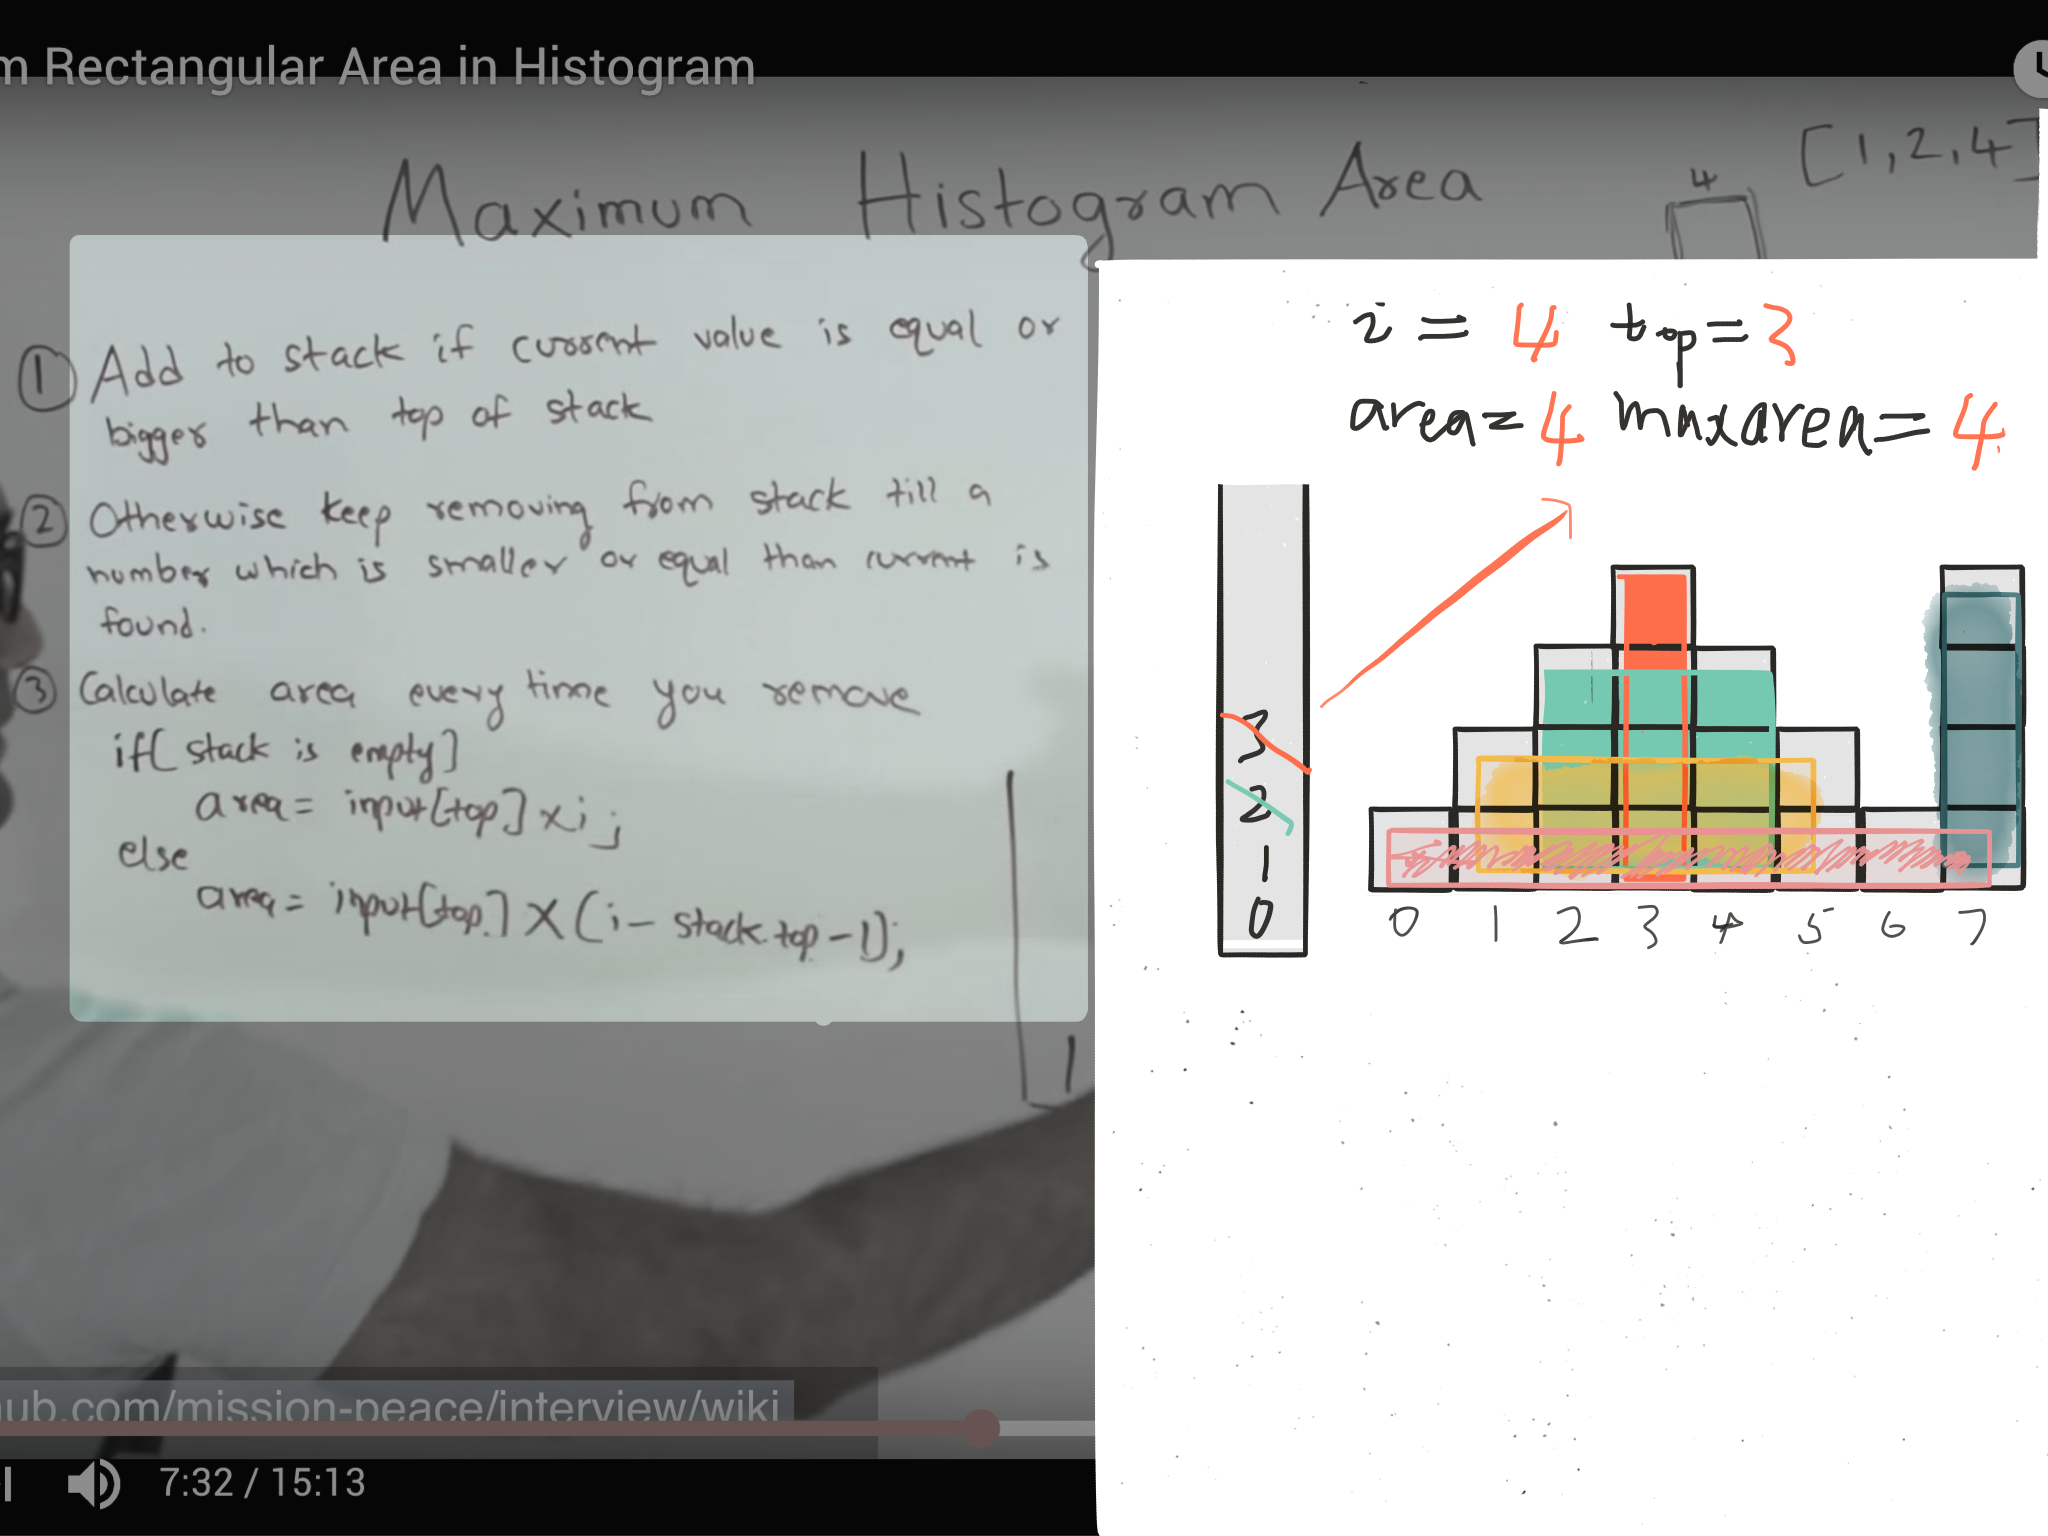 m Rectangular Area in Histogram
Maximum Histogram Area
[1,2,4]
4
① Add to stack if current value is equal or
bigger than top of stack
② Otherwise keep removing from stack till a
number which is smaller or equal than current is
found.
③ Calculate area every time you remove
if[stack is empty]
area = input[top] x i;
else
area = input[top] X (i - stack.top - 1);
1
i = 4 top = 3
area = 4 maxarea = 4
3
2
1
0
0 1 2 3 4 5 6 7
ub.com/mission-peace/interview/wiki
7:32 / 15:13